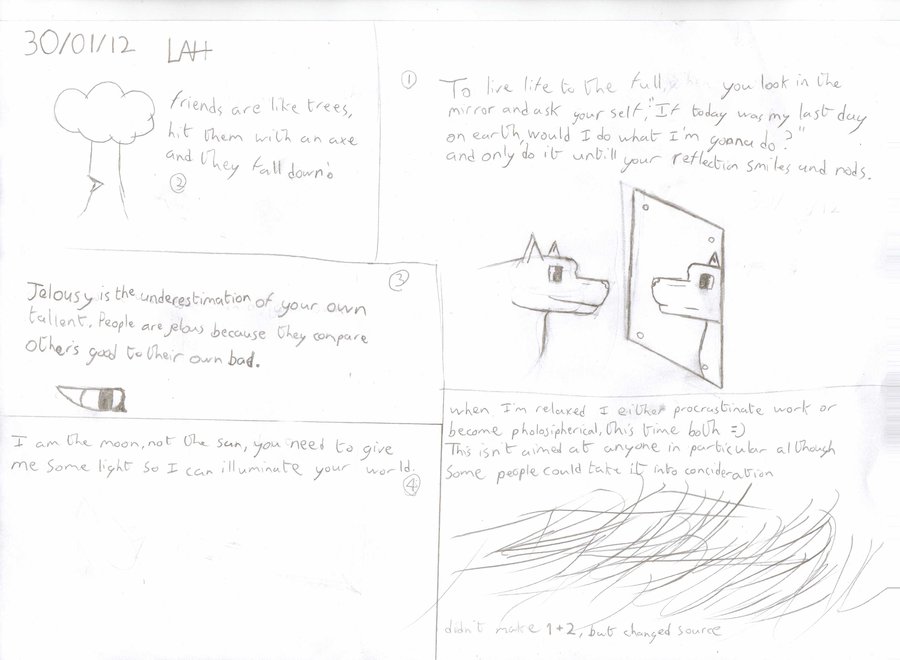 30/01/12 LAH
friends are like trees,
hit them with an axe
and they fall down.
②
①
To live life to the full, you look in the
mirror and ask your self, "If today was my last day
on earth, would I do what I'm gonna do?"
and only do it untill your reflection smiles and nods.
③
Jelousy is the underestimation of your own
tallent. People are jelous because they compare
other's good to their own bad.
I am the moon, not the sun, you need to give
me some light so I can illuminate your world.
④
when I'm relaxed I either procrastinate work or
become pholosipherical, this time both =)
This isn't aimed at anyone in particular although
some people could take it into consideration
didn't make 1+2, but changed source